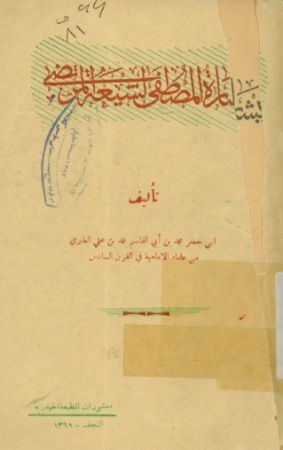 ٩٤
٨١
بشارة المصطفى لشيعة المرتضى
تأليف
ابي جعفر محمد بن أبي القاسم محمد بن علي الطبري
من علماء الامامية في القرن السادس
منشورات المطبعة الحيدرية
النجف - ١٣٦٩